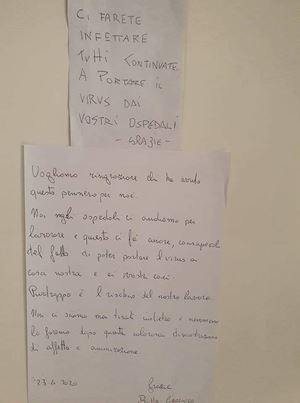 CI FARETE
INFETTARE
TUTTI CONTINUATE
A PORTARE IL
VIRUS DAI
VOSTRI OSPEDALI
- GRAZIE -
Vogliamo ringraziare chi ha avuto
questo pensiero per noi.
Noi negli ospedali ci andiamo per
lavorare e questo ci fa onore, consapevoli
del fatto di poter portare il virus a
casa nostra e ai nostri cari.
Purtroppo è il rischio del nostro lavoro.
Non ci siamo mai tirati indietro e nemmeno
lo faremo dopo questa calorosa dimostrazione
di affetto e ammirazione.
23.4.2020
Grazie